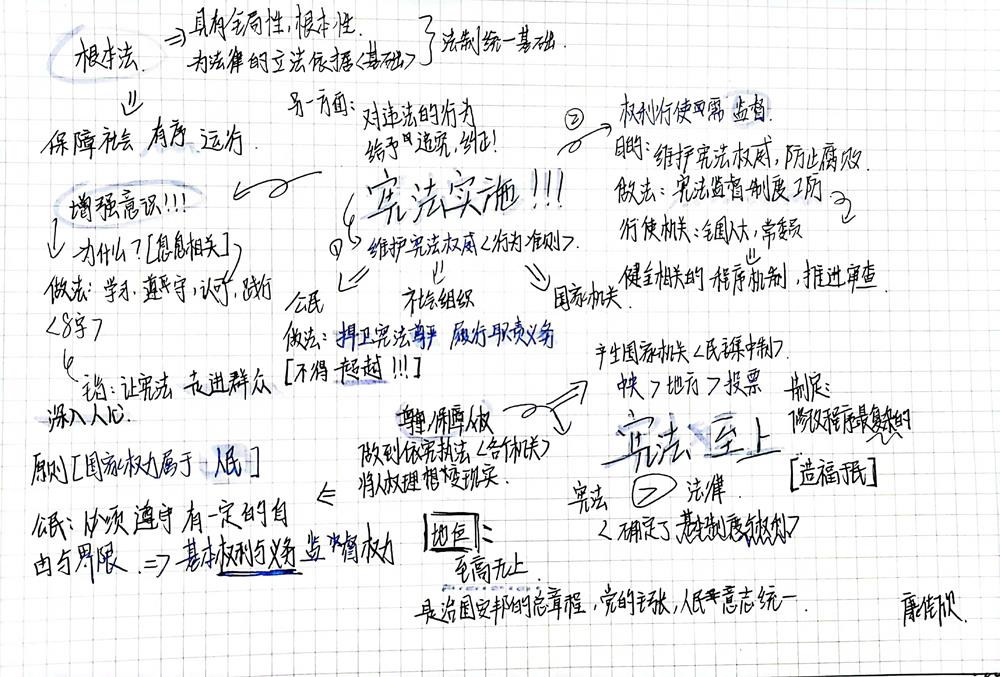 根本法 ⇒ 具有全局性，根本性.
为法律的立法依据<基础>
} 法制统一基础.
⇓
保障社会 有序 运行.
另一方面: 对违法的行为
给予 追究, 纠正!
② 权利行使需 监督.
目的: 维护宪法权威, 防止腐败.
做法: 宪法监督制度
行使机关: 全国人大, 常委员
⇓
健全相关的 程序机制, 推进审查.
宪法实施!!!
增强意识!!!
↓ 为什么? [息息相关]
做法: 学习, 遵守, 认可, 践行
<8字>
让宪法 走进群众
深入人心.
① 维护宪法权威<行为准则>.
公民 社会组织 国家机关.
做法: 捍卫宪法尊严 履行职责义务
[不得 超越!!!]
产生国家机关<民主集中制>.
中央>地方>投票
制定:
修改程序最复杂的
[造福于民]
宪法至上
宪法 > 法律.
<确定了 基本制度与权利>
尊重/保障人权
做到依宪执法<各个机关>
将人权理想变现实.
原则[国家权力属于 人民]
公民: 必须 遵守 有一定的自
由与界限 ⇒ 基本权利与义务 监督权力
地位:
至高无上.
是治国安邦的总章程, 党的主张, 人民意志统一.
康佳欣